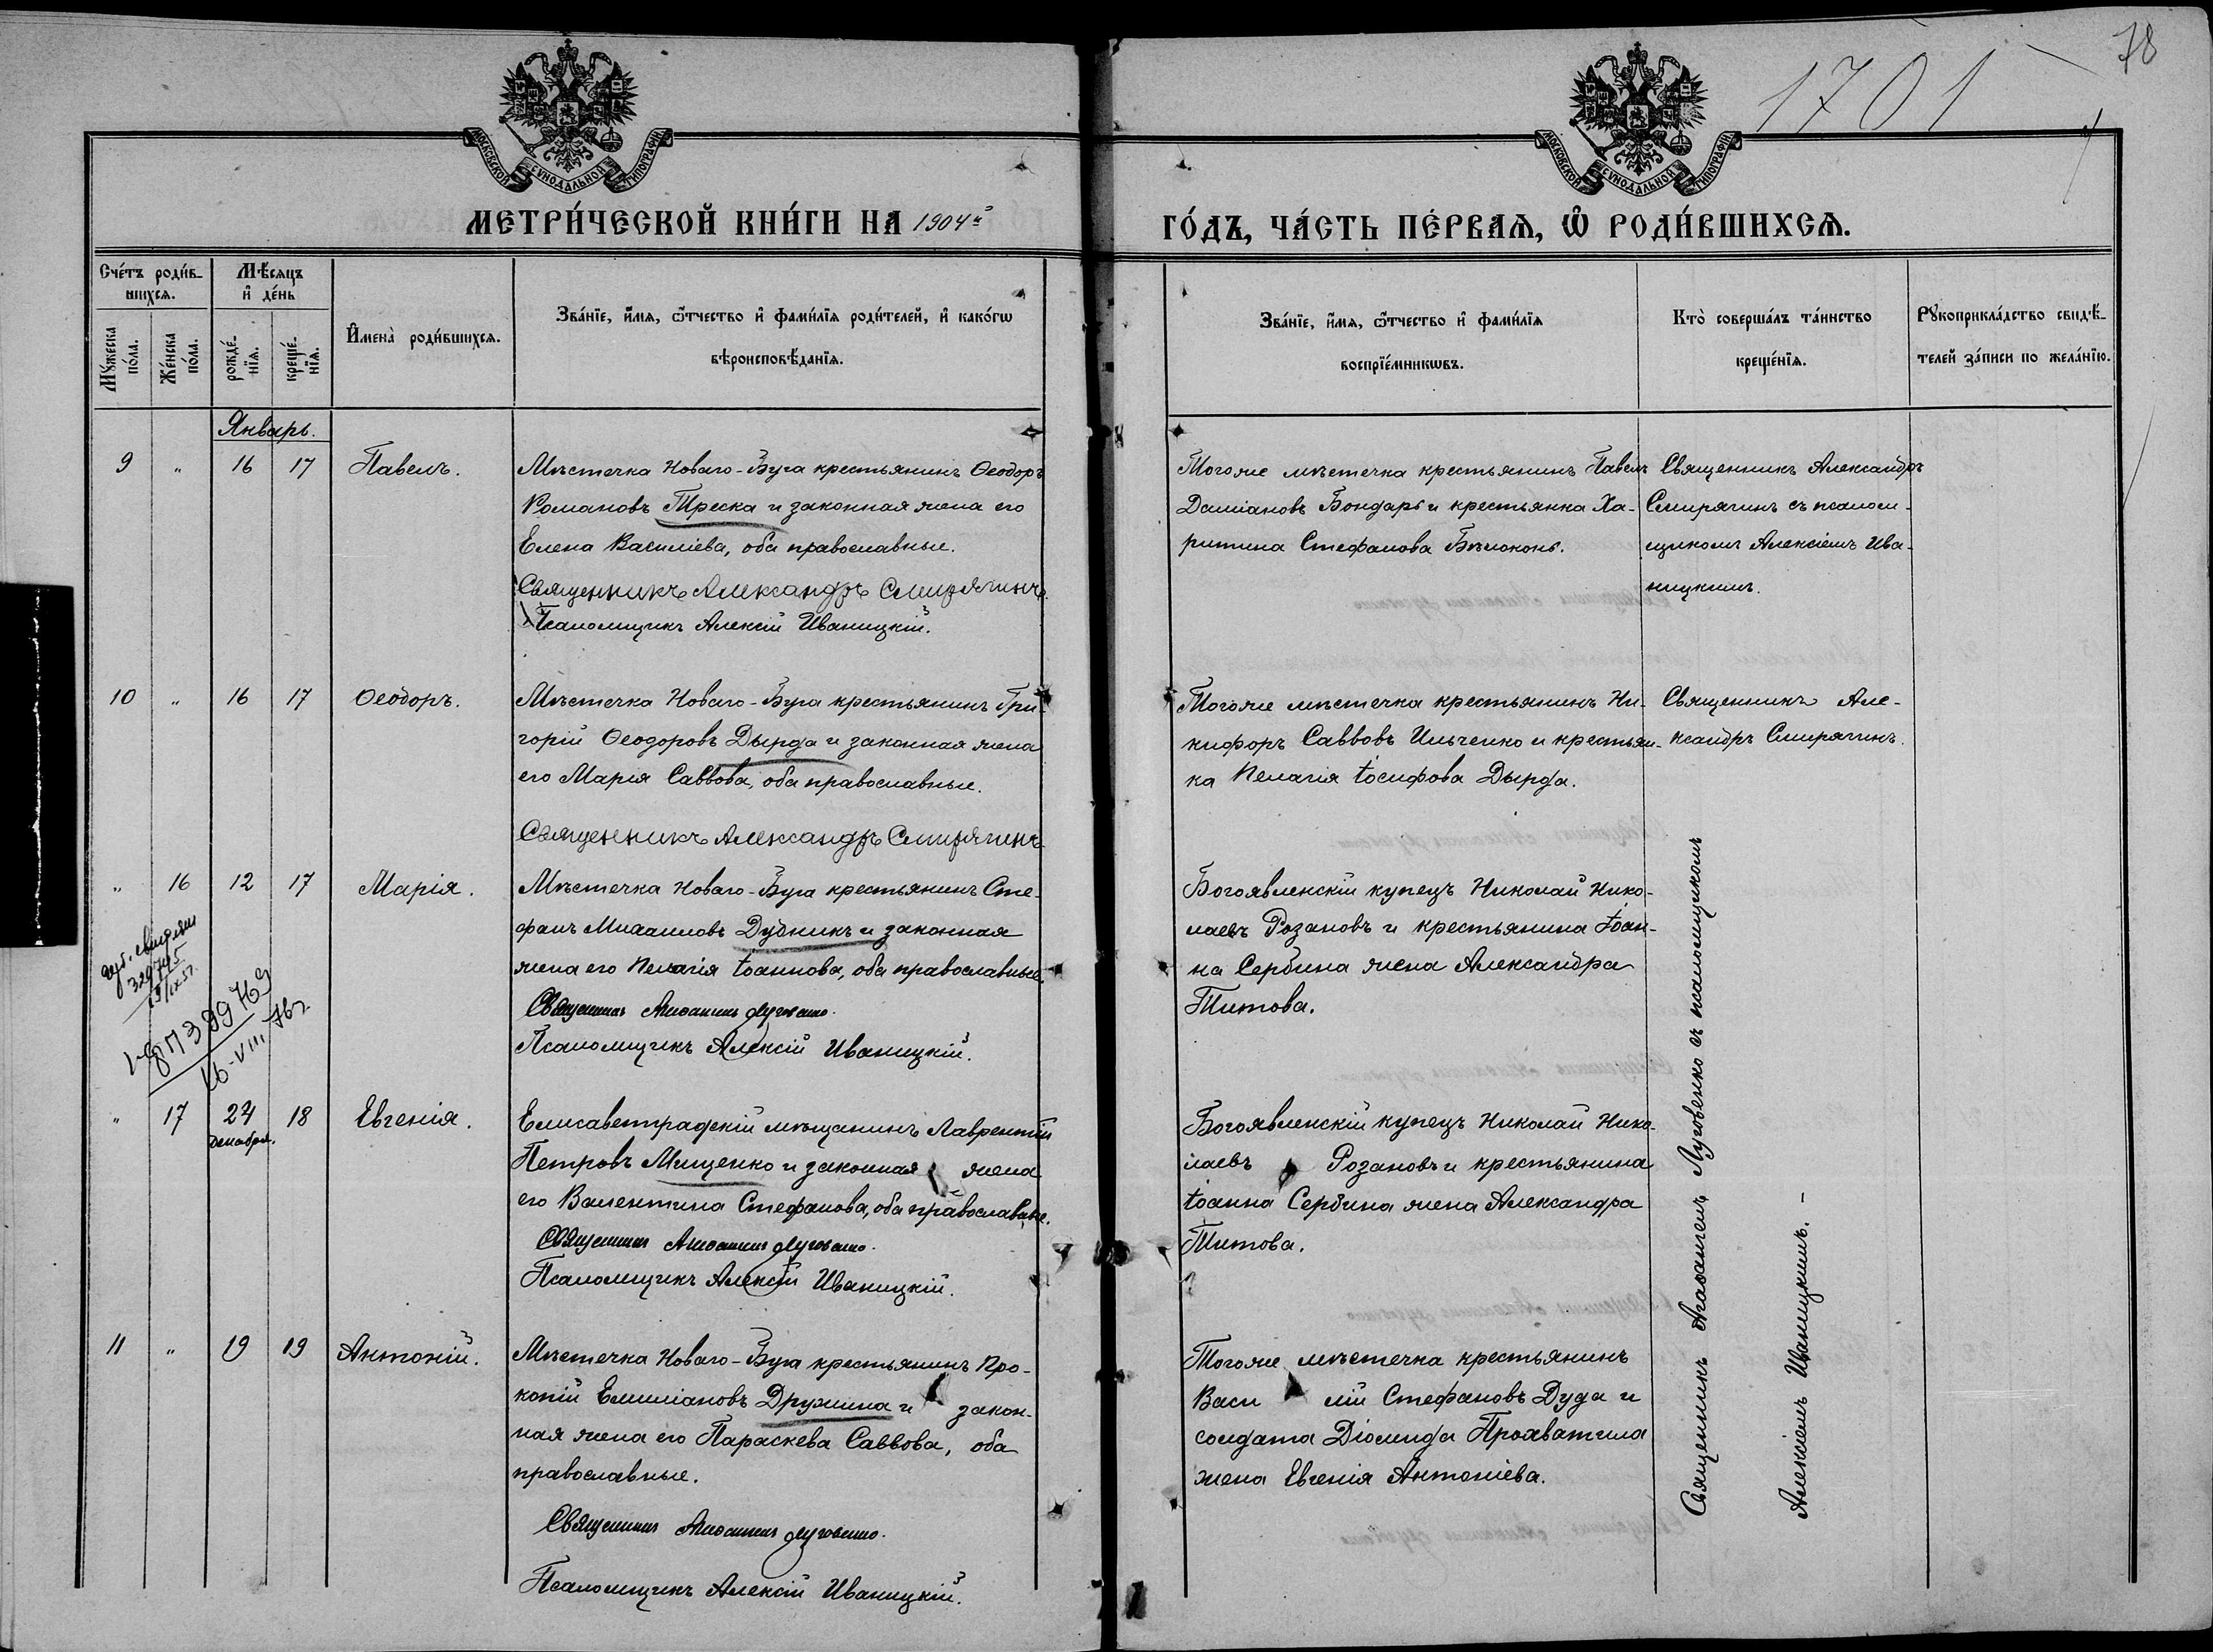 78
1701
МОСКОВСКОЙ СѴНОДАЛЬНОЙ ТИПОГРАФІИ
МОСКОВСКОЙ СѴНОДАЛЬНОЙ ТИПОГРАФІИ
МЕТРИ́ЧЕСКОЙ КНИ́ГИ НА 1904й
ГО́ДЪ, ЧА́СТЬ ПЕ́РВАѦ, Ѽ РОДИ́ВШИХСѦ.
Сче́тъ роди́в-
шихсѧ.
Мѣ́сѧцъ
и҆ де́нь
Мꙋ́жеска по́ла.
Же́нска по́ла.
рожде́-нїѧ.
креще́-нїѧ.
И҆мена̀ роди́вшихсѧ.
Зва́нїе, и҆́мѧ, ѻ҆́тчество и҆ фами́лїѧ роди́телей, и҆ како́гѡ
вѣроисповѣ́данїѧ.
Зва́нїе, и҆́мѧ, ѻ҆́тчество и҆ фами́лїѧ
воспрїе́мникѡвъ.
Кто̀ соверша́лъ та́инство
креще́нїѧ.
Рꙋкоприкла́дство свидѣ́-
телей за́писи по жела́нїю.
Январь.
9 " 16 17 Павелъ.
Мѣстечка Новаго-Буга крестьянинъ Ѳеодоръ
Романовъ Треска и законная жена его
Елена Василіева, оба православные.
Священникъ Александръ Смирягинъ.
Псаломщикъ Алексій Иваницкій.
Тогоже мѣстечка крестьянинъ Павелъ
Даміановъ Бондарь и крестьянка Ха-
ритина Стефанова Бѣлоконь.
Священникъ Александръ
Смирягинъ съ псалом-
щикомъ Алексіемъ Ива-
ницкимъ.
10 " 16 17 Ѳеодоръ.
Мѣстечка Новаго-Буга крестьянинъ Гри-
горій Ѳеодоровъ Дырда и законная жена
его Марія Саввова, оба православные.
Священникъ Александръ Смирягинъ
Тогоже мѣстечка крестьянинъ Ни-
кифоръ Саввовъ Ильченко и крестьян-
ка Пелагія Іосифова Дырда.
Священникъ Але-
ксандръ Смирягинъ.
" 16 12 17 Марія.
Мѣстечка Новаго-Буга крестьянинъ Сте-
фанъ Михаиловъ Дубникъ и законная
жена его Пелагія Іоаннова, оба православные.
Священникъ Агаѳангелъ Луговенко.
Псаломщикъ Алексій Иваницкій.
Богоявленскій купецъ Николай Нико-
лаевъ Розановъ и крестьянина Іоан-
на Сербина жена Александра
Титова.
16-VIII 76г
" 17 24 18 Евгенія.
Декабря.
Елисаветградскій мѣщанинъ Лаврентій
Петровъ Мищенко и законная жена
его Валентина Стефанова, оба православные.
Священникъ Агаѳангелъ Луговенко.
Псаломщикъ Алексій Иваницкій.
Богоявленскій купецъ Николай Нико-
лаевъ Розановъ и крестьянина
Іоанна Сербина жена Александра
Титова.
11 " 19 19 Антоній.
Мѣстечка Новаго-Буга крестьянинъ Про-
копій Емиліановъ Дружина и закон-
ная жена его Параскева Саввова, оба
православные.
Священникъ Агаѳангелъ Луговенко.
Псаломщикъ Алексій Иваницкій.
Тогоже мѣстечка крестьянинъ
Васи лій Стефановъ Дуда и
солдата Діомида Прохватила
жена Евгенія Антоніева.
Священникъ Агаѳангелъ Луговенко съ псаломщикомъ
Алексіемъ Иваницкимъ. —